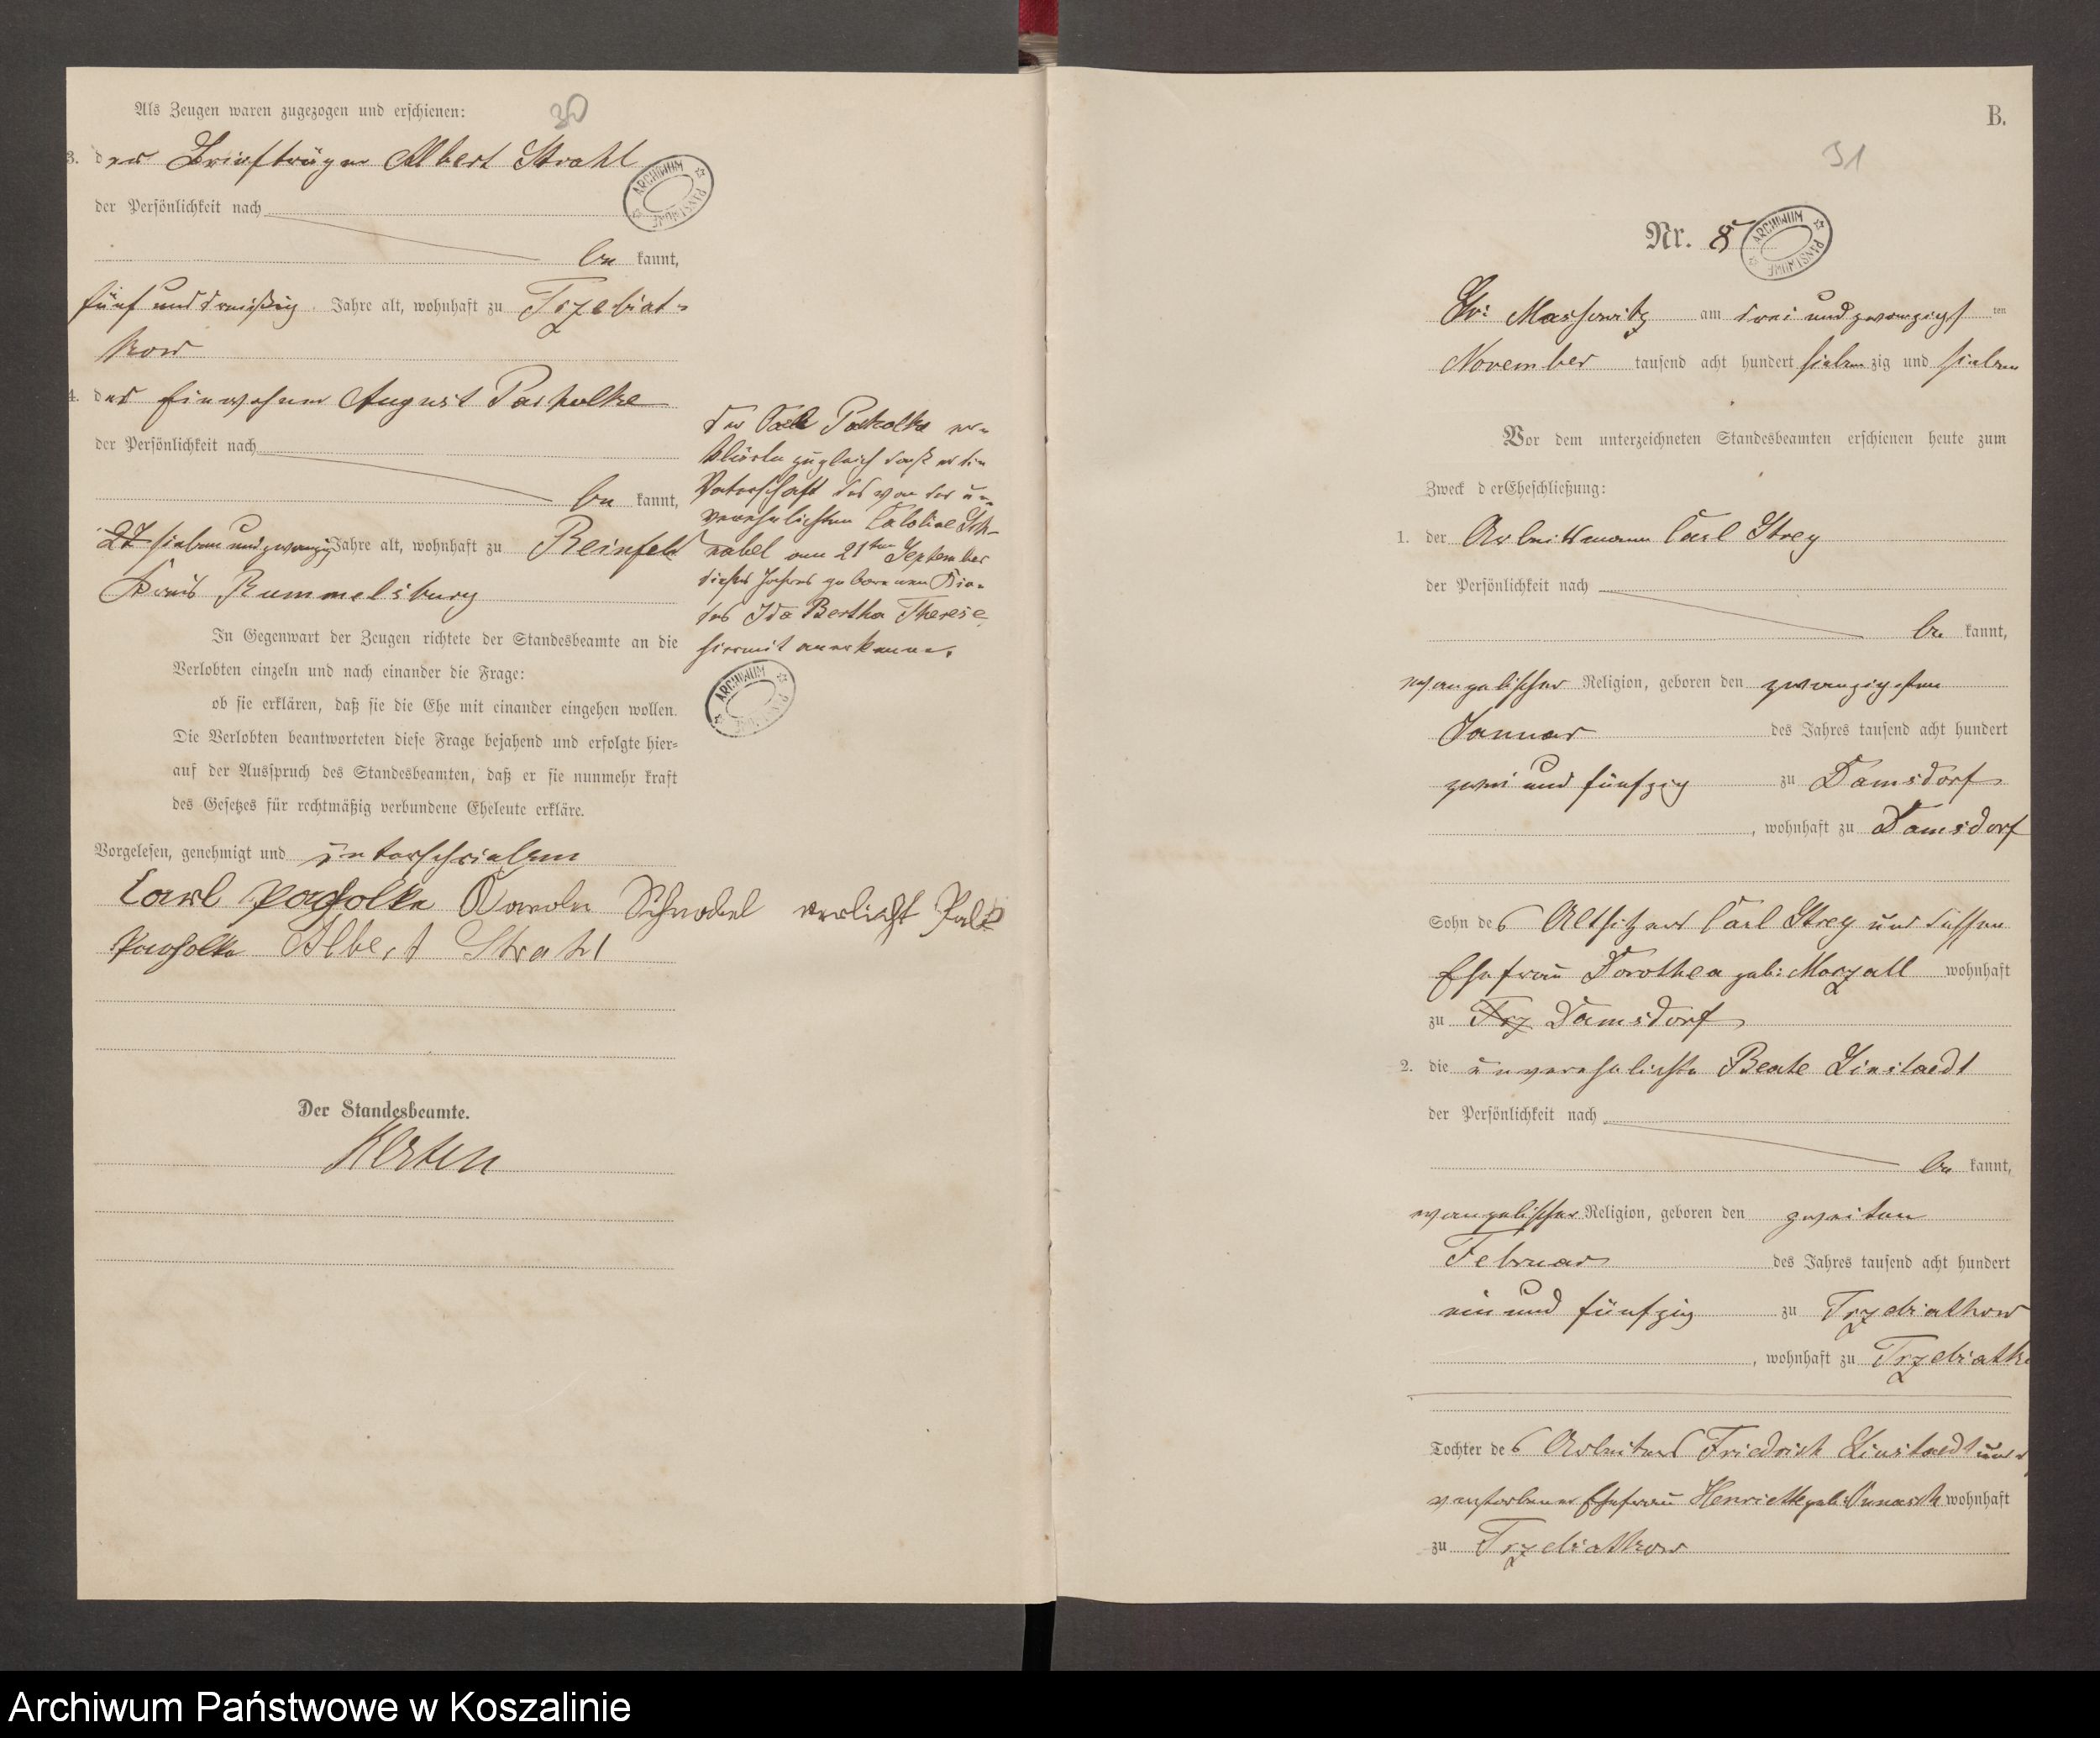 Als Zeugen waren zugezogen und erschienen:
30
3. der Briefträger Albert Strahl
der Persönlichkeit nach
be kannt,
fünf und dreißig Jahre alt, wohnhaft zu Trzebiat-
kow
4. der Einwohner August Pasholke
der Persönlichkeit nach
be kannt,
27 sieben und zwanzig Jahre alt, wohnhaft zu Reinfeld
Kreis Rummelsburg
In Gegenwart der Zeugen richtete der Standesbeamte an die
Verlobten einzeln und nach einander die Frage:
ob sie erklären, daß sie die Ehe mit einander eingehen wollen.
Die Verlobten beantworteten diese Frage bejahend und erfolgte hier-
auf der Ausspruch des Standesbeamten, daß er sie nunmehr kraft
des Gesetzes für rechtmäßig verbundene Eheleute erkläre.
Vorgelesen, genehmigt und unterschrieben
Carl Pasholke Schnabel
Pasholke Albert Strahl
Der Standesbeamte.
der Carl er-
klärte zugleich daß er die
Vaterschaft des von der un-
verehelichten Caroline Sch-
nabel am 21ten September
dieses Jahres geborenen Kin-
des Ida Bertha Therese
hiermit anerkenne.
ARCHIWUM PAŃSTWOWE
ARCHIWUM PAŃSTWOWE
B.
31
Nr. 8
ARCHIWUM PAŃSTWOWE
Gr: Massowitz am drei und zwanzigst ten
November tausend acht hundert sieben zig und sieben
Vor dem unterzeichneten Standesbeamten erschienen heute zum
Zweck der Eheschließung:
1. der Arbeitsmann Carl Strey
der Persönlichkeit nach
be kannt,
evangelischer Religion, geboren den zwanzigsten
Januar des Jahres tausend acht hundert
zwei und fünfzig zu Damsdorf
, wohnhaft zu Damsdorf
Sohn des Altsitzers Carl Strey und dessen
Ehefrau Dorothea geb: Marzall wohnhaft
zu Trz Damsdorf
2. die unverehelichte Beate Linstaedt
der Persönlichkeit nach
be kannt,
evangelischer Religion, geboren den zweiten
Februar des Jahres tausend acht hundert
ein und fünfzig zu Trzebiatkow
, wohnhaft zu Trzebiatko
Tochter des Arbeiters Friedrich Linstaedt und
verstorbener Ehefrau Henriette geb: wohnhaft
zu Trzebiatkow
Archiwum Państwowe w Koszalinie